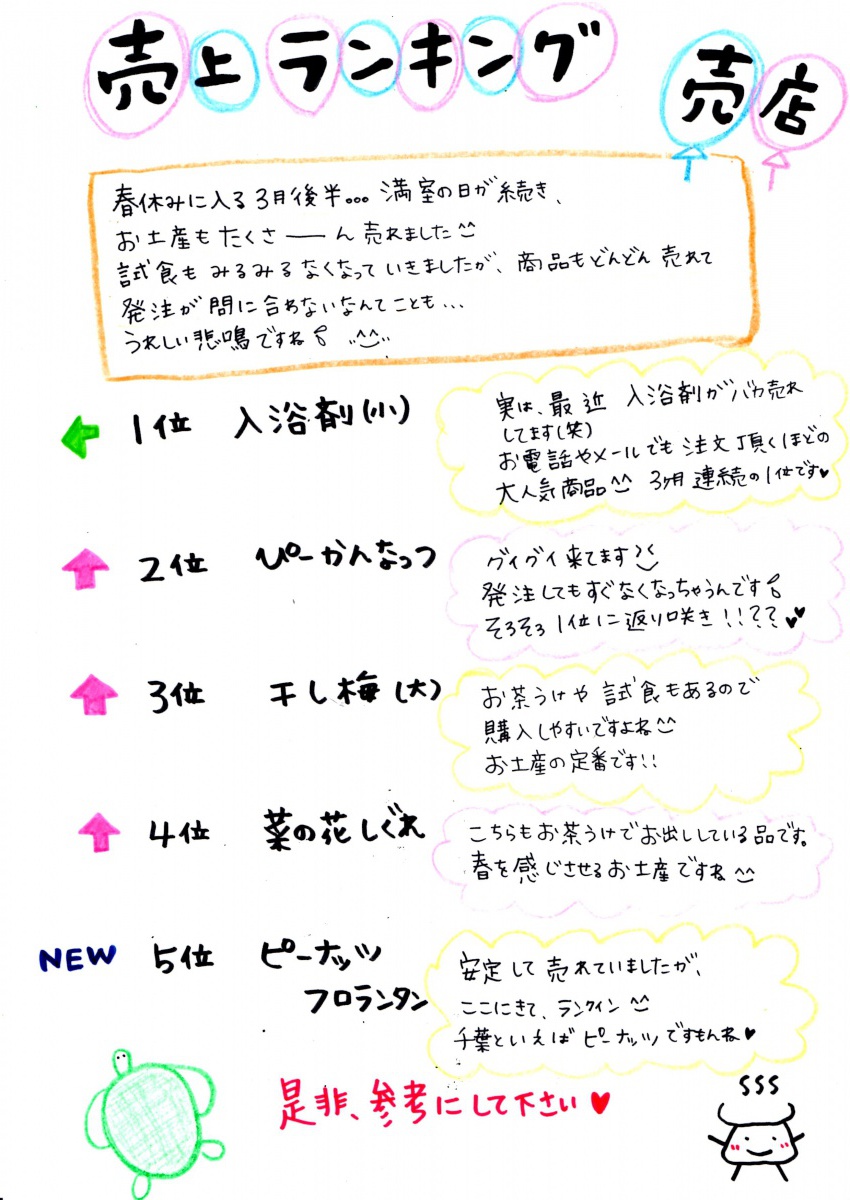 売上ランキング
売店
春休みに入る3月後半... 満室の日が続き、
お土産もたくさーーん売れました^^
試食もみるみるなくなっていきましたが、商品もどんどん売れて
発注が間に合わないなんてことも...
うれしい悲鳴ですね♪ ^^
1位 入浴剤(小)
実は、最近 入浴剤がバカ売れ
してます(笑)
お電話やメールでも注文頂くほどの
大人気商品^^ 3ヶ月連続の1位です♥
2位 ぴーかんなっつ
グイグイ来てます
発注してもすぐなくなっちゃうんです♪
そろそろ1位に返り咲き!!??♥♥
3位 干し梅(大)
お茶うけや試食もあるので
購入しやすいですよね^^
お土産の定番です!!
4位 菜の花しぐれ
こちらもお茶うけでお出ししている品です。
春を感じさせるお土産ですね^^
NEW 5位 ピーナッツ
フロランタン
安定して売れていましたが、
ここにきて、ランクイン^^
千葉といえばピーナッツですもんね♥
是非、参考にして下さい♥
SSS